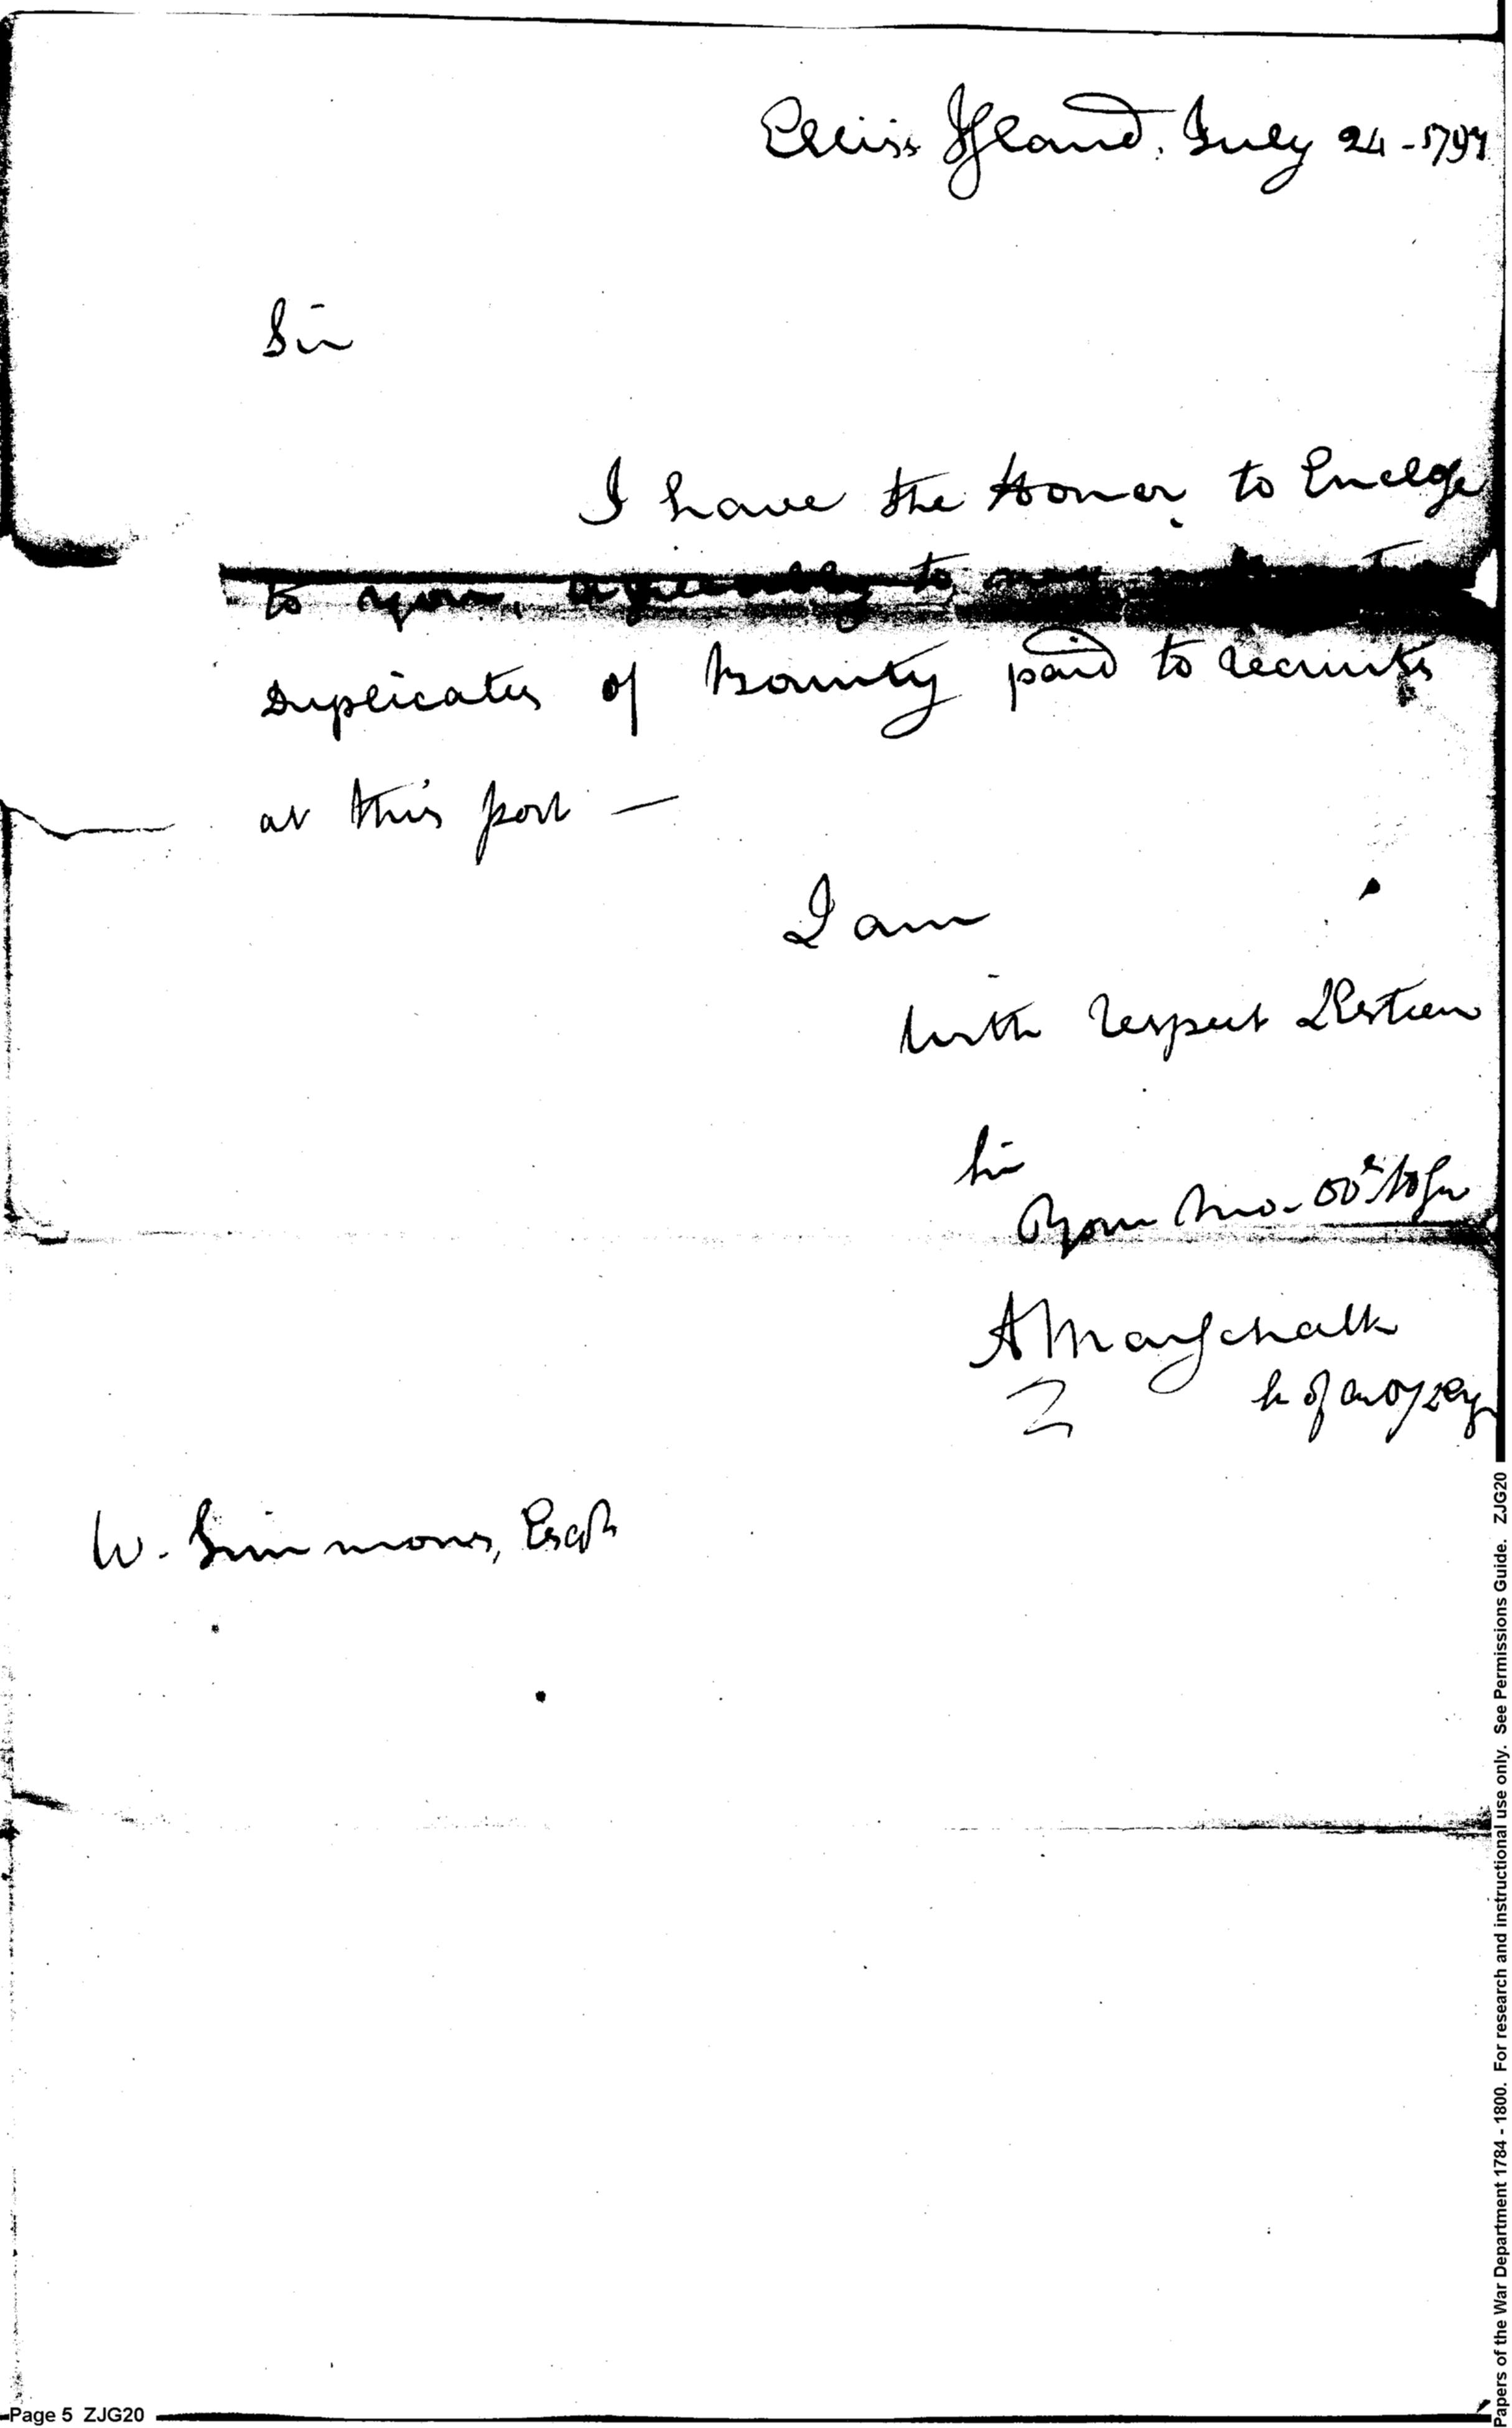 Elliss Island. July 24 - 1797
Sir
I have the Honor to Enclose
to you, agreeably to my
Duplicates of Bounty paid to recruits
at this post —
I am
With respect & Esteem
Sir
Your mo. Obt
A Marschalk
W. Simmons, Esqr
Page 5 ZJG20
Papers of the War Department 1784 - 1800. For research and instructional use only. See Permissions Guide. ZJG20